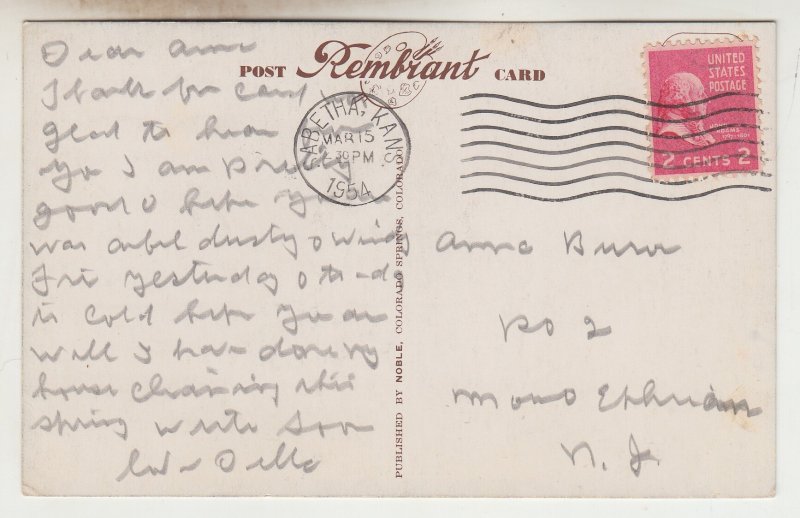 POST Rembrant CARD
UNITED
STATES
POSTAGE
JOHN
ADAMS
1797-1801
2 CENTS 2
SABETHA, KANS
MAR 15
PM
1954
Dear Anne
Thank for card
glad to hear
yo I am pretty
good I hope you
was awful dusty & windy
Fri yesterday & to-da
is cold hope you are
well I have done my
house cleaning this
spring write soon
Della
PUBLISHED BY NOBLE, COLORADO SPRINGS, COLORADO
Anna
RO 2
N. J.